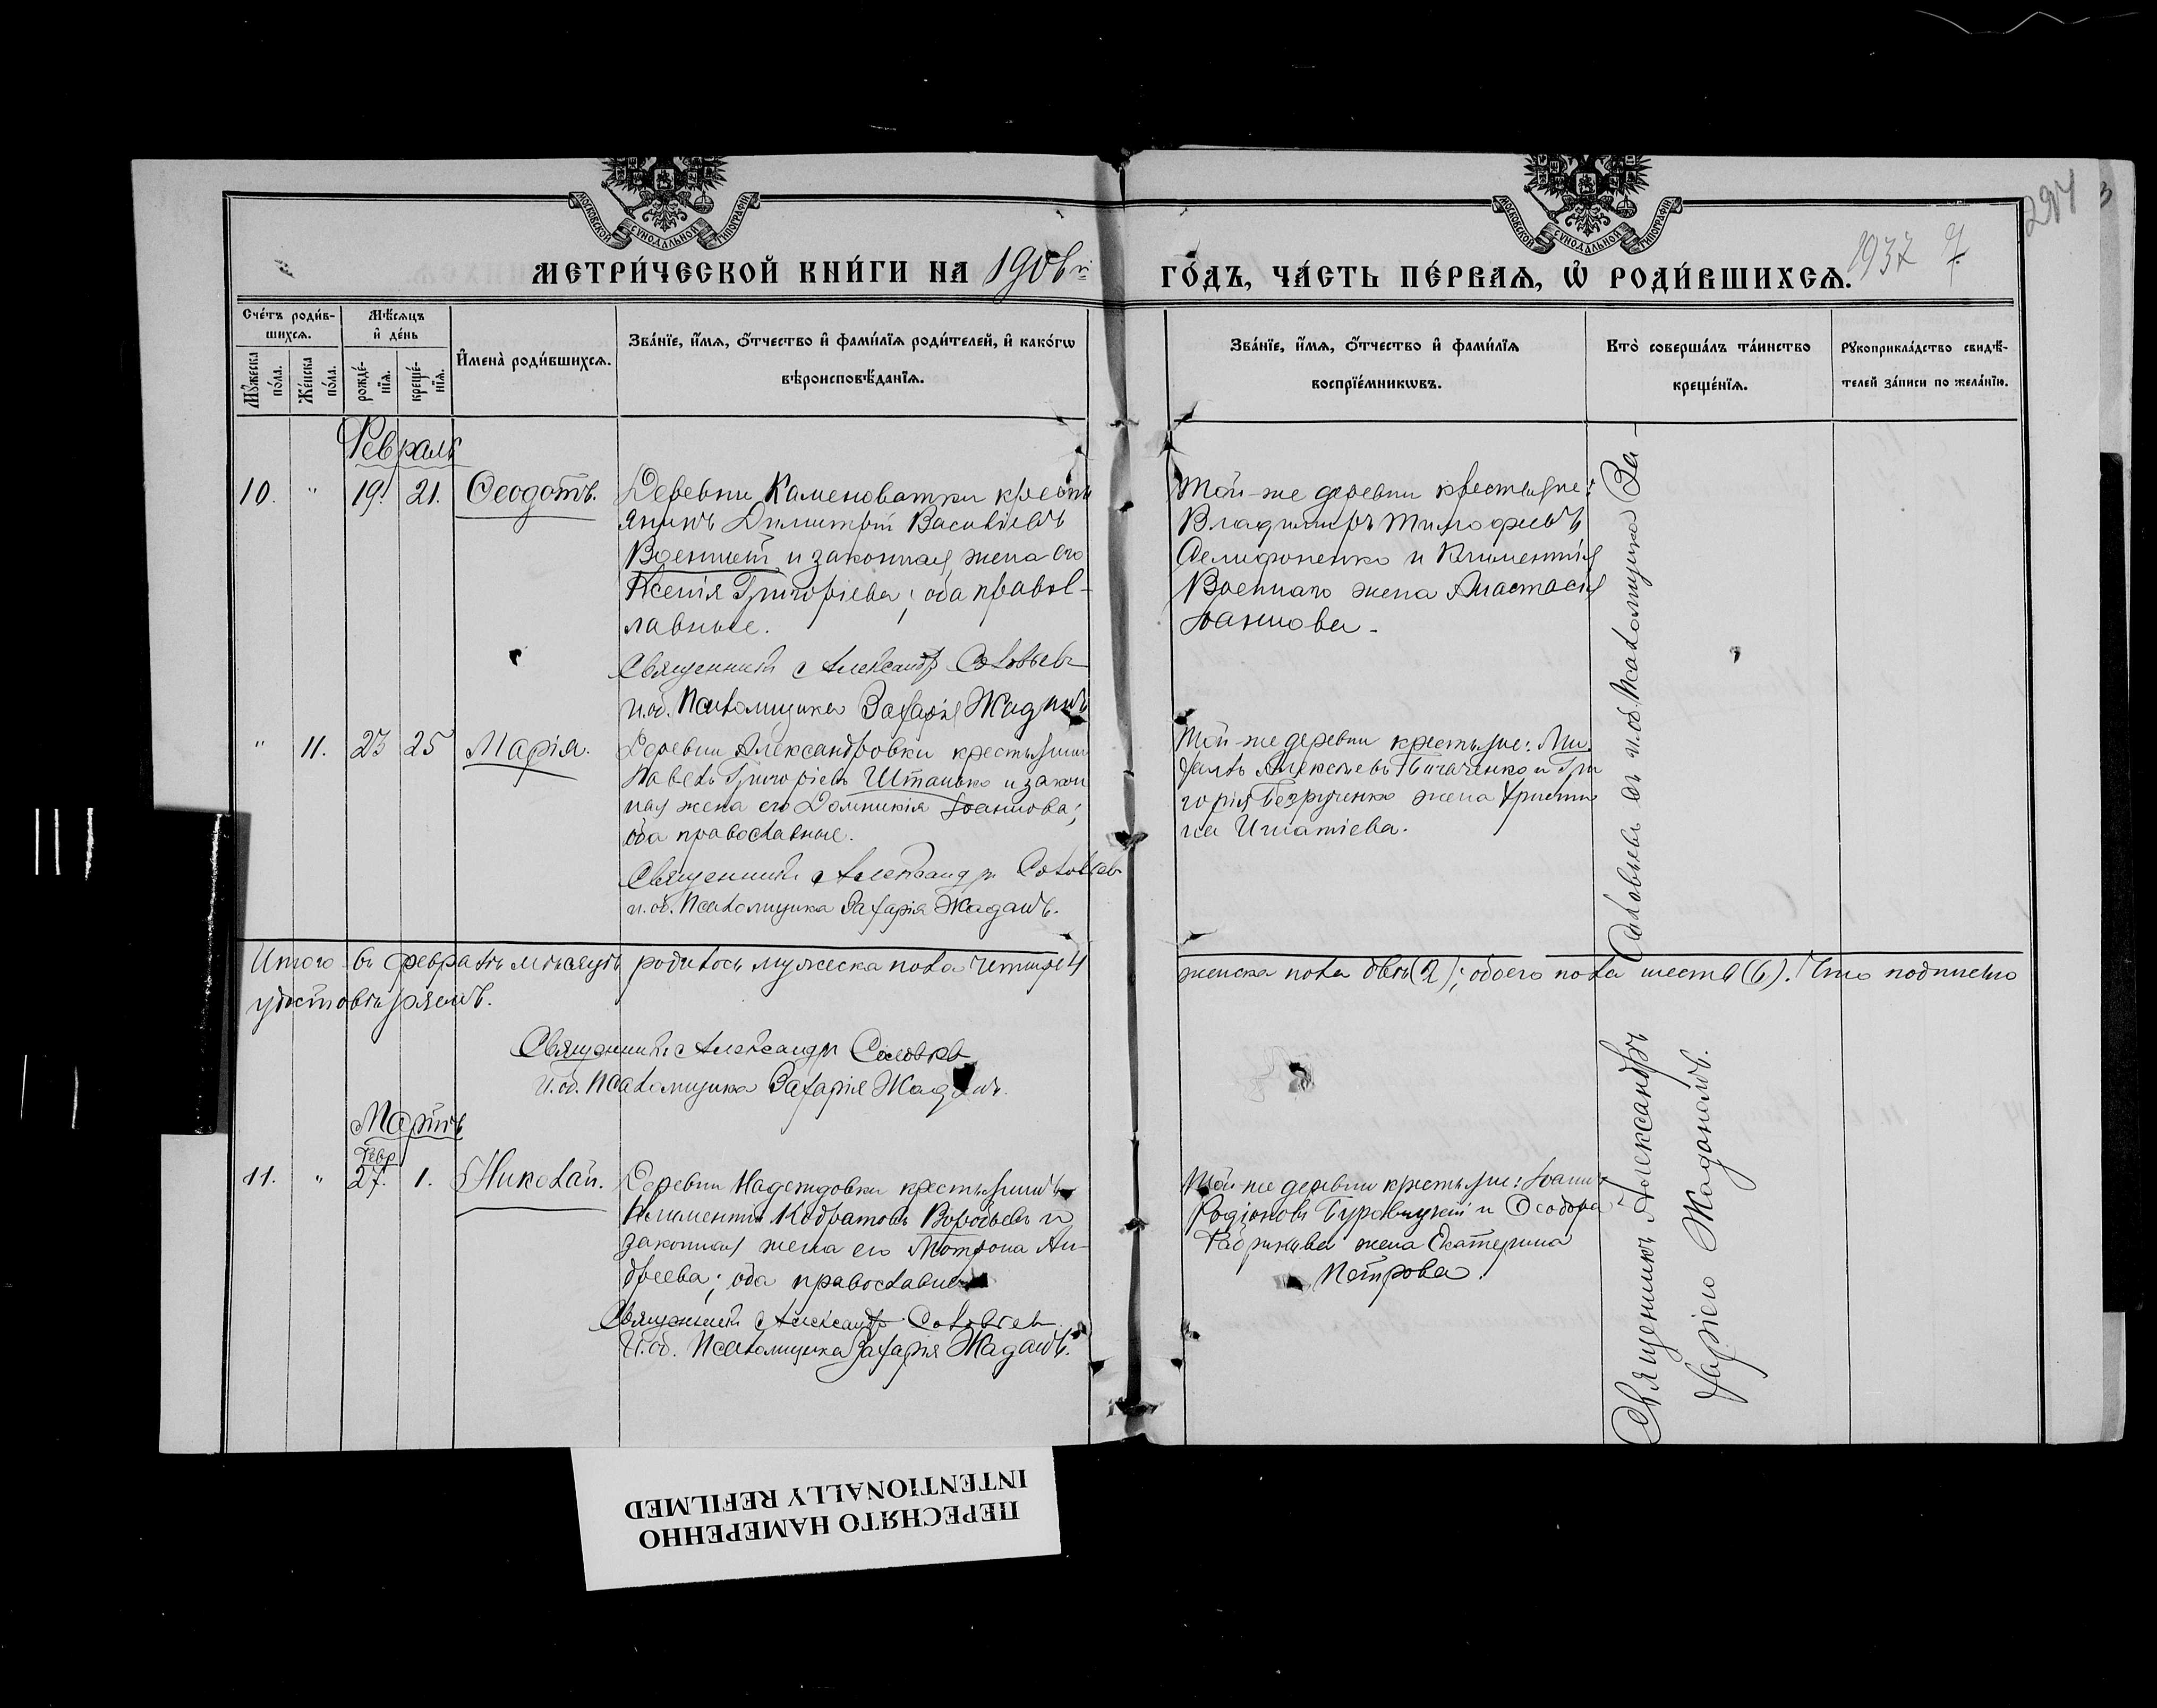 МОСКОВСКОЙ СѴНОДАЛЬНОЙ ТИПОГРАФІИ
МОСКОВСКОЙ СѴНОДАЛЬНОЙ ТИПОГРАФІИ
МЕТРИ́ЧЕСКОЙ КНИ́ГИ НА 1906й
ГО́ДЪ, ЧА́СТЬ ПЕ́РВАѦ, Ѽ РОДИ́ВШИХСѦ.
1937
7
Сче́тъ роди́в-
шихсѧ.
Мѣ́сѧцъ
и҆ де́нь
Мꙋ́жеска
по́ла.
Же́нска
по́ла.
рожде́-
нїѧ.
креще́-
нїѧ.
И҆мена̀ роди́вшихсѧ.
Зва́нїе, и҆́мѧ, ѻ҆́тчество и҆ фами́лїѧ роди́телей, и҆ како́гѡ
вѣроисповѣ́данїѧ.
Зва́нїе, и҆́мѧ, ѻ҆́тчество и҆ фами́лїѧ
воспрїе́мникѡвъ.
Кто̀ соверша́лъ та́инство
креще́нїѧ.
Рꙋкоприкла́дство свидѣ́-
телей за́писи по жела́нїю.
Февраль
10. " 19. 21. Ѳеодотъ.
Деревни Каменоватки кресть
янинъ Димитрій Васильевъ
Военный и законная жена его
Ксенія Григоріева; оба правос-
лавные.
Священникъ Александръ Соловьевъ
и.об. Псаломщика Захарія Жаданъ
Той-же деревни крестьяне:
Владимиръ Тимофѣевъ
и Климентія
Военнаго жена Анастасія
Іоаннова.
" 11. 23 25 Марія.
Деревни Александровки крестьянинъ
Павелъ Григоріевъ Штанько и закон
ная жена его Домникія Іоаннова;
оба православные.
Священникъ Александръ Соловьевъ
и.об. Псаломщика Захарія Жаданъ.
Той-же деревни крестьяне: Ми
хаилъ Алексѣевъ и Гри
горія Безрученко жена Христи
на Игнатіева.
Итого въ февралѣ мѣсяцѣ родилось мужеска пола четыре 4
женска пола двѣ (2); обоего пола шесть (6). Что подписью
удостовѣряемъ.
Священникъ Александръ Соловьевъ
И.об. Псаломщика Захарія Жаданъ.
Мартъ
Февр
11. " 27. 1. Николай.
Деревни Надеждовки крестьянинъ
Климентій Кодратовъ Воробьевъ и
законная жена его Мотрона Ан-
дреева; оба православные
Священникъ Александръ Соловьевъ
И.об. Псаломщика Захарія Жаданъ.
Той-же деревни крестьяне: Іоаннъ
Родіоновъ и Ѳеодора
жена Екатерина
Петрова.
Священникъ Александръ Соловьевъ съ и.об. Псаломщика За-
харіею Жаданомъ.
ПЕРЕСНЯТО НАМЕРЕННО
INTENTIONALLY REFILMED